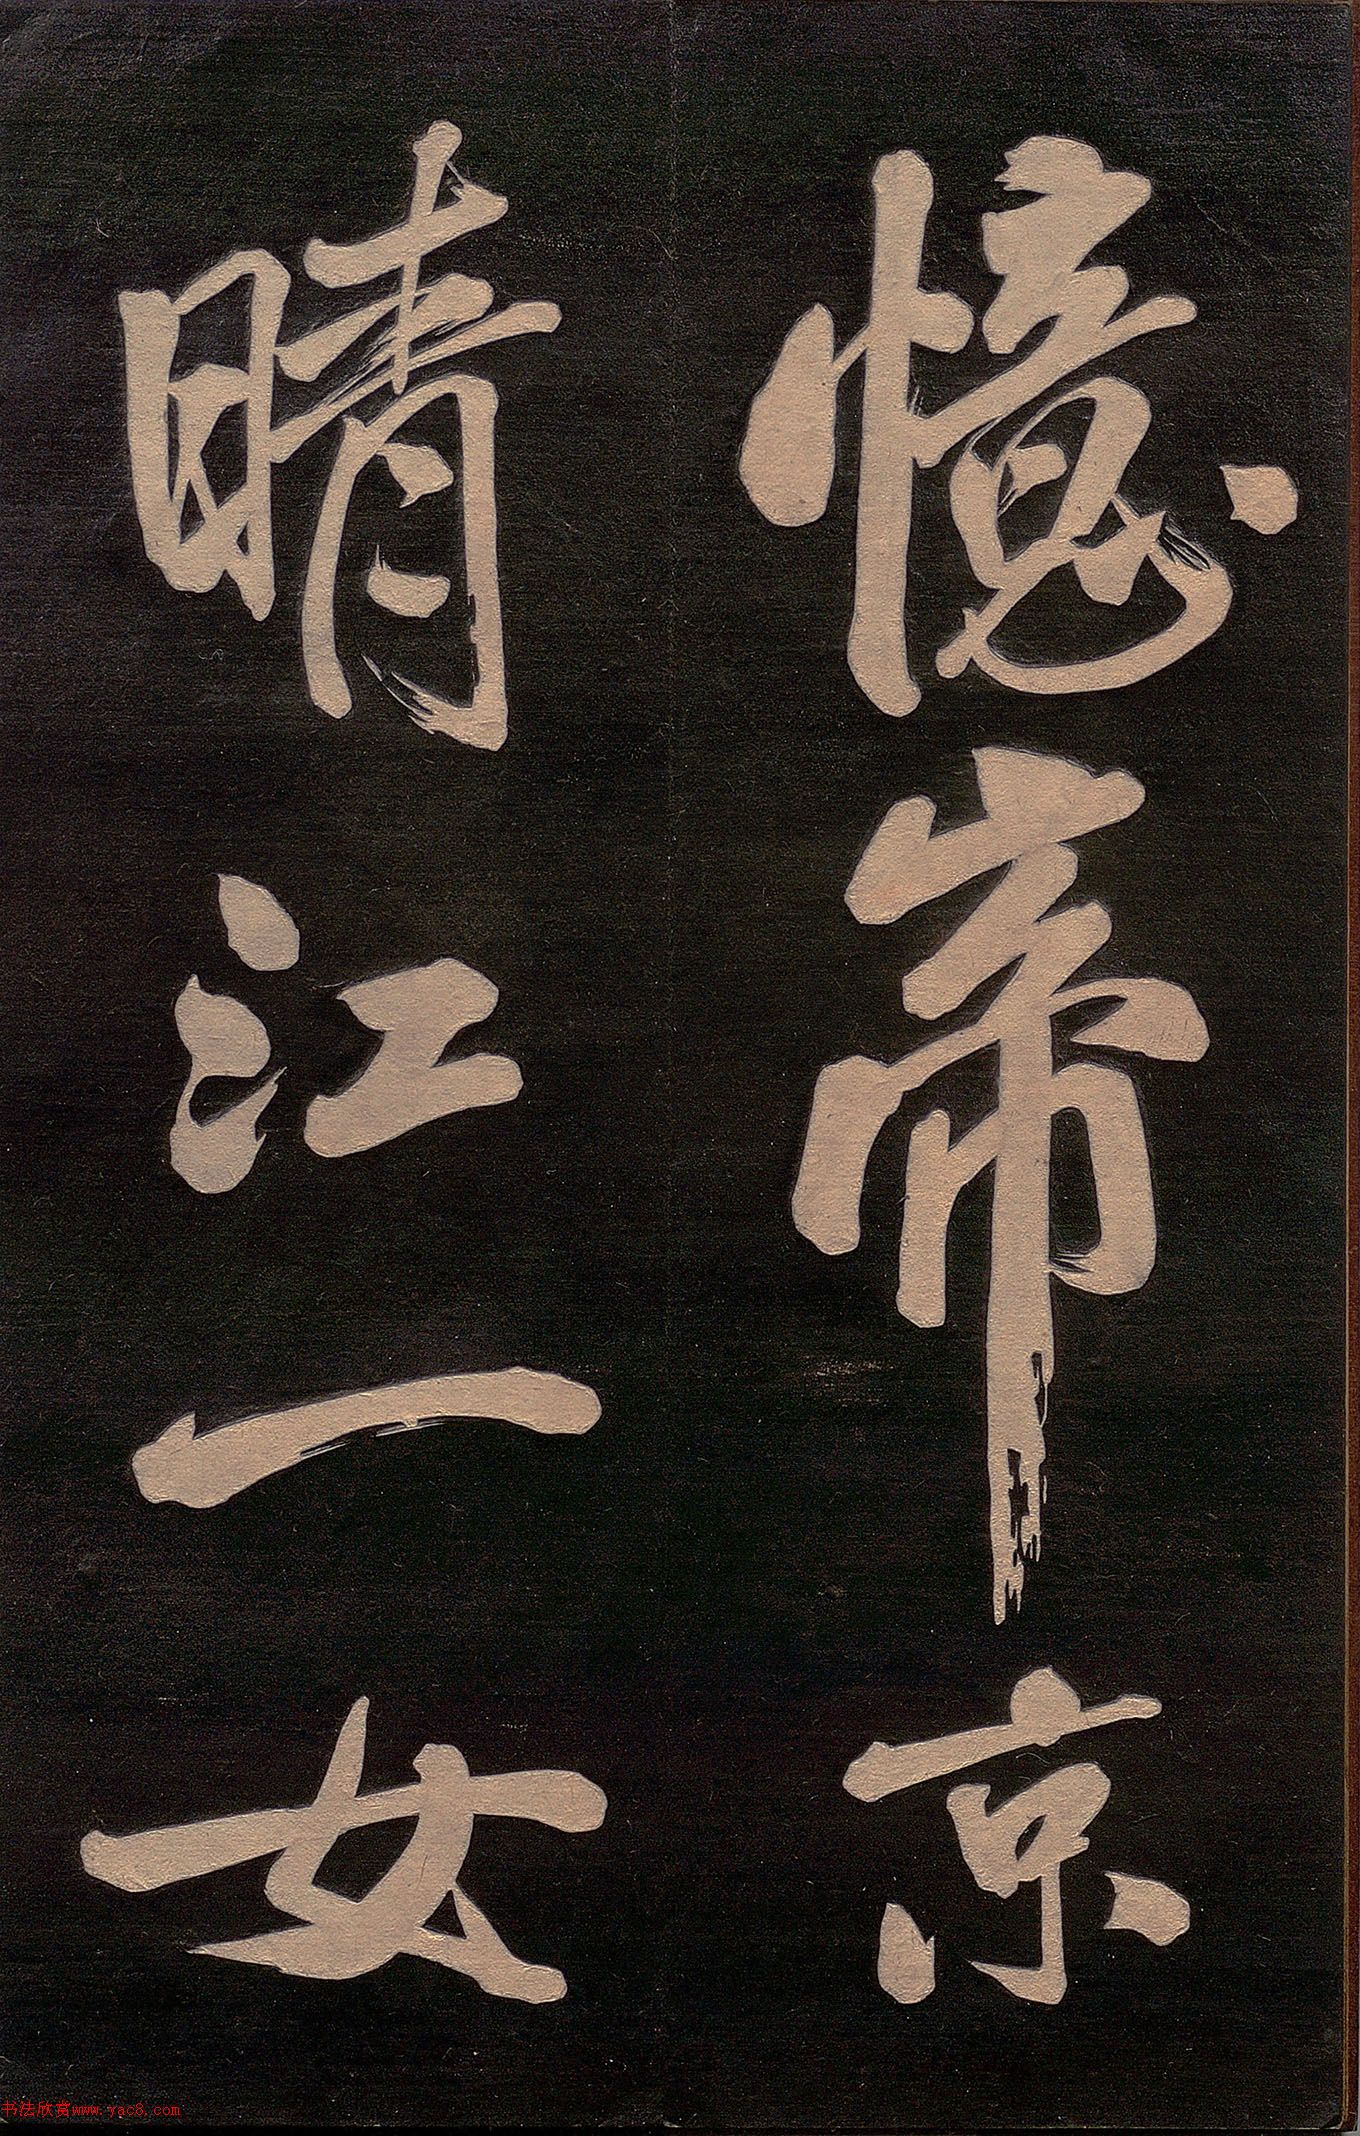 憶帝京
晴江一女
书法欣赏www.yac8.com